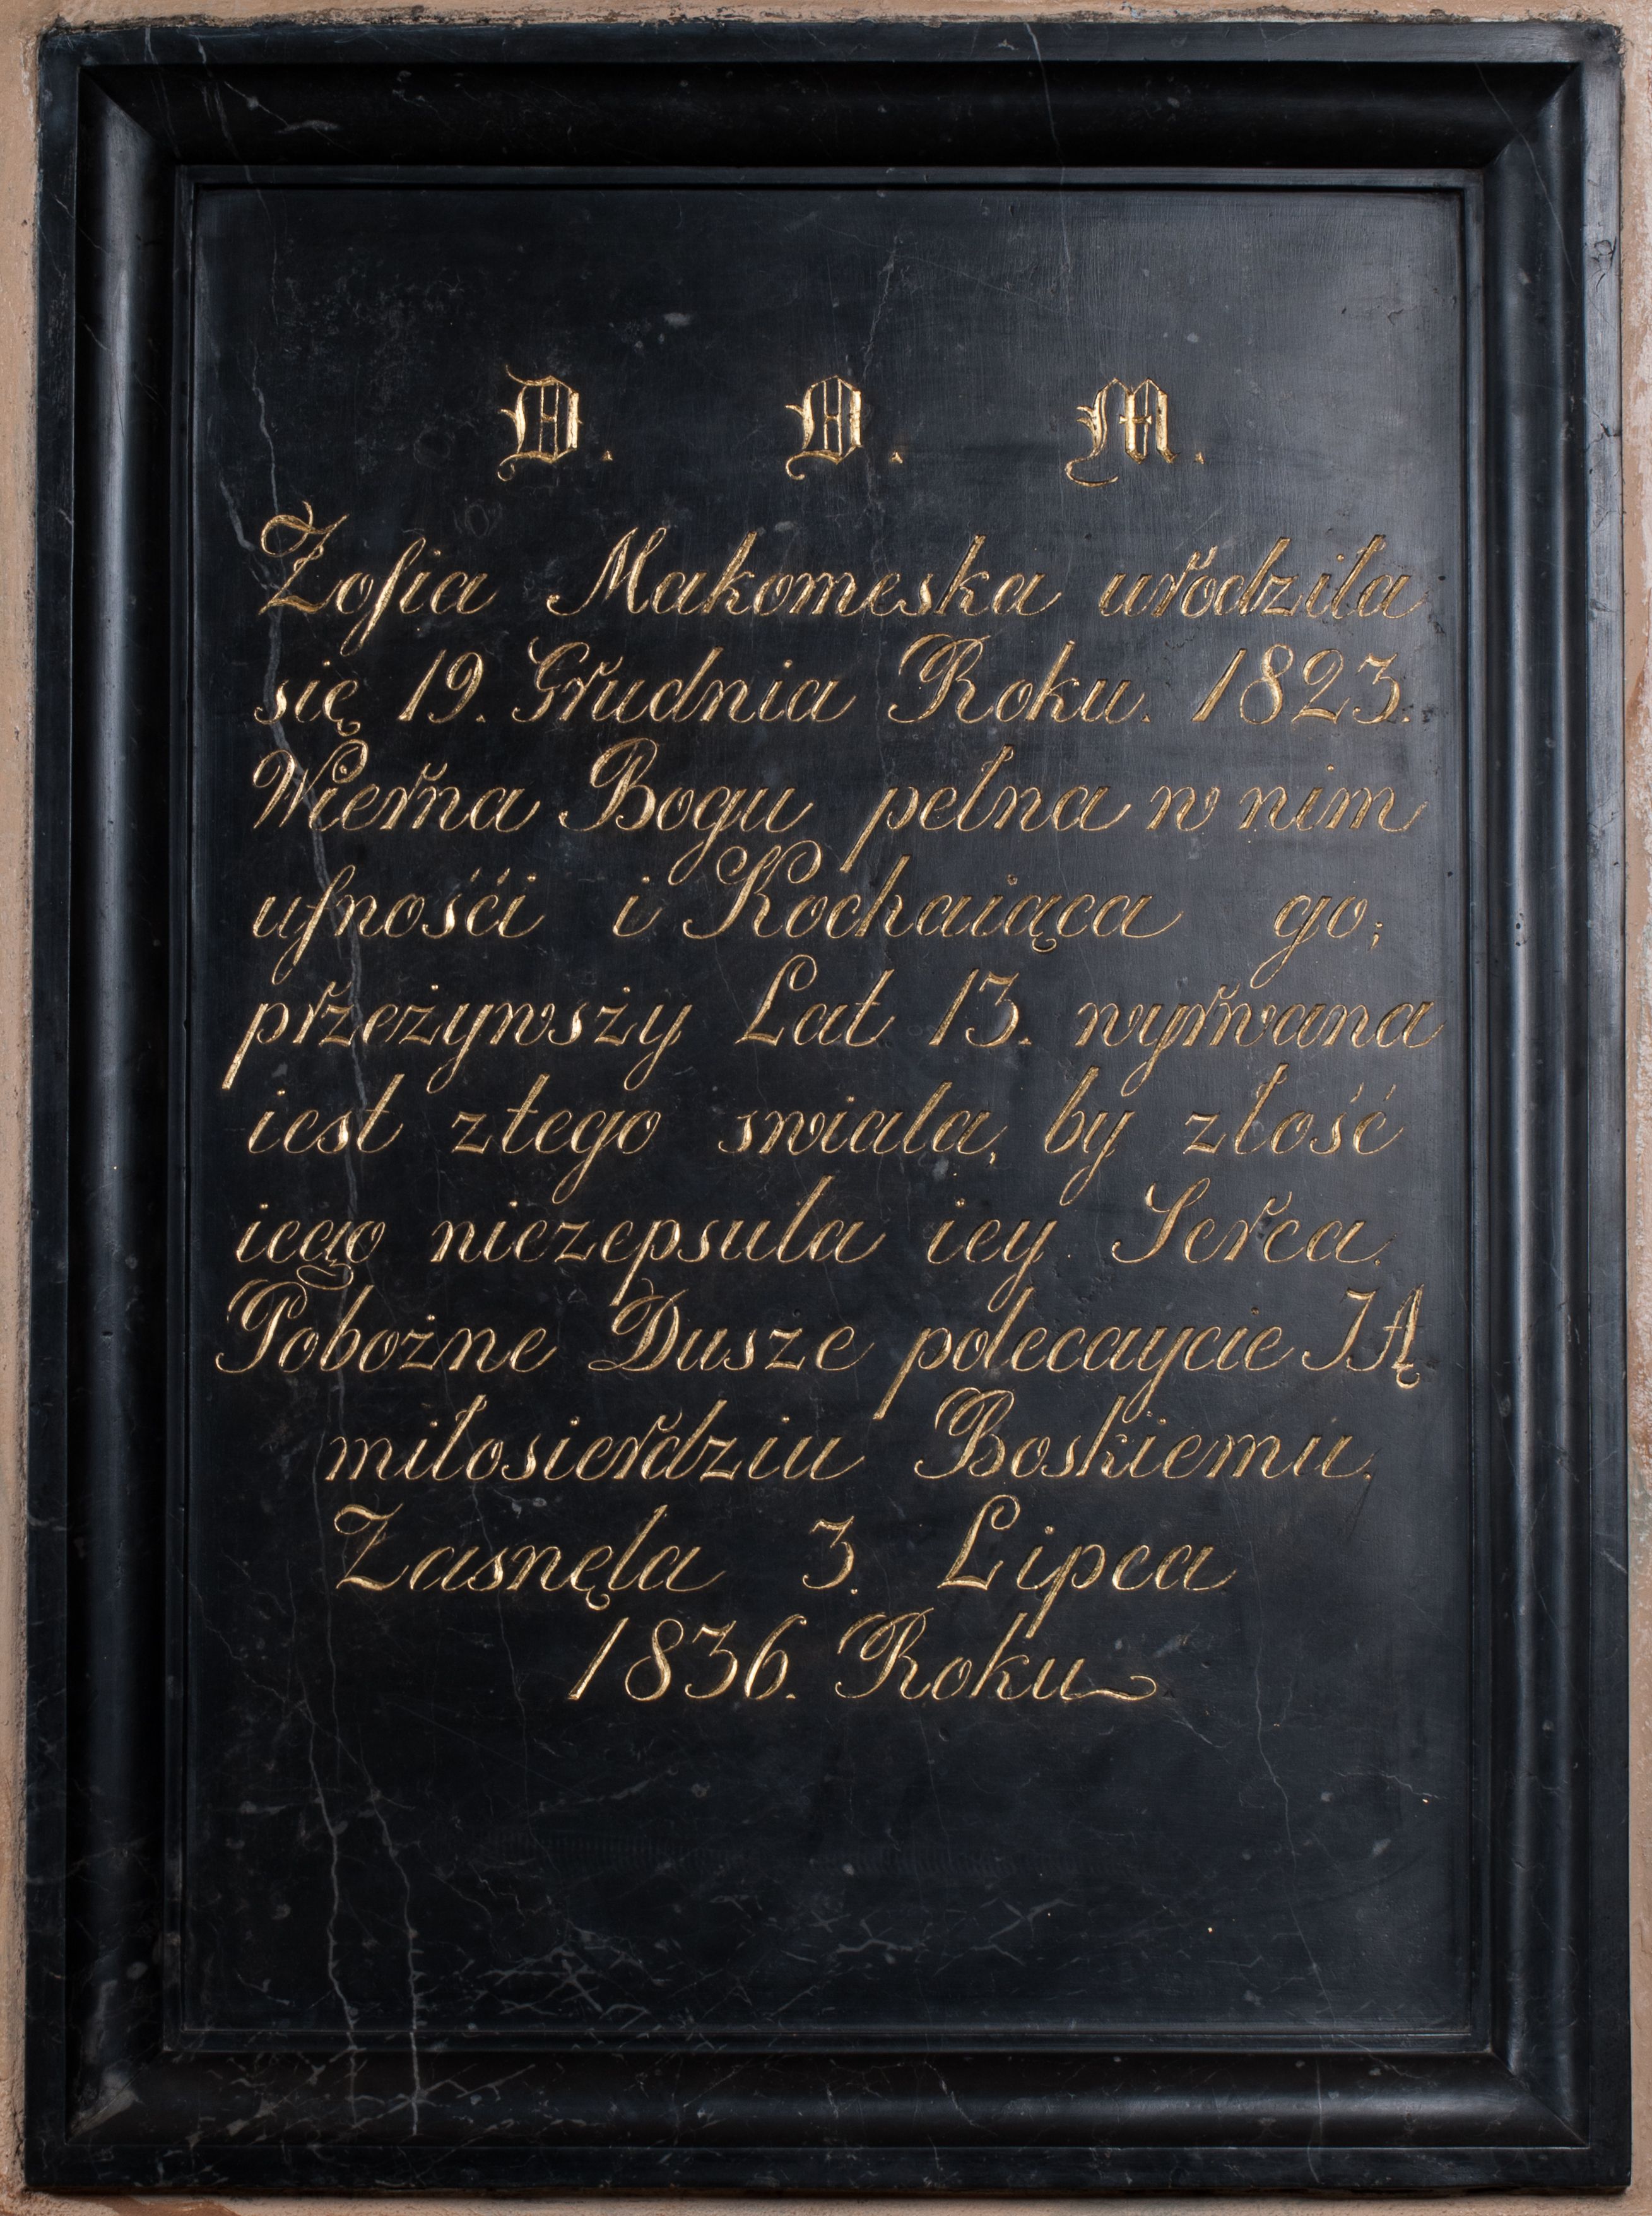 D. O. M.
Zofia Makomeska urodziła
się 19. Grudnia Roku. 1823.
Wierna Bogu pełna w nim
ufnośći i Kochaiąca go;
przeżywszy Lat 13. wyrwana
iest złego swiata, by złość
iego niezepsuła iey Serca.
Pobożne Dusze polecaycie IĄ
miłosierdziu Boskiemu.
Zasnęła 3. Lipca
1836. Roku